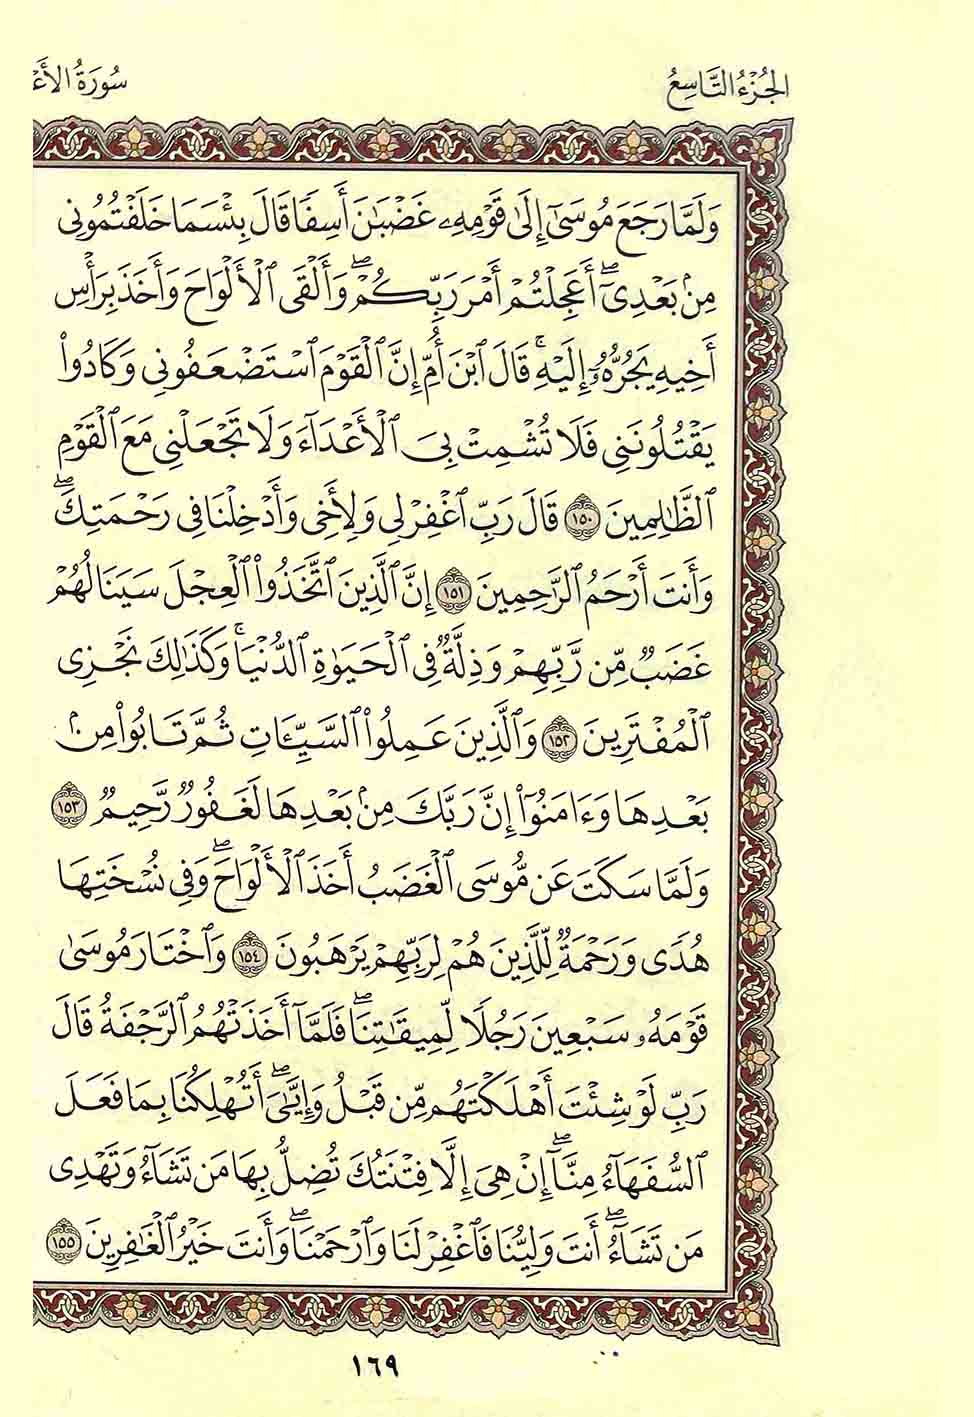 الجُزْءُ التَّاسِعُ
سُورَةُ الأَعْ
وَلَمَّا رَجَعَ مُوسَىٰٓ إِلَىٰ قَوْمِهِۦ غَضْبَٰنَ أَسِفًا قَالَ بِئْسَمَا خَلَفْتُمُونِى
مِنۢ بَعْدِىٓۖ أَعَجِلْتُمْ أَمْرَ رَبِّكُمْۖ وَأَلْقَى ٱلْأَلْوَاحَ وَأَخَذَ بِرَأْسِ
أَخِيهِ يَجُرُّهُۥٓ إِلَيْهِۚ قَالَ ٱبْنَ أُمَّ إِنَّ ٱلْقَوْمَ ٱسْتَضْعَفُونِى وَكَادُوا۟
يَقْتُلُونَنِى فَلَا تُشْمِتْ بِىَ ٱلْأَعْدَآءَ وَلَا تَجْعَلْنِى مَعَ ٱلْقَوْمِ
ٱلظَّٰلِمِينَ ١٥٠ قَالَ رَبِّ ٱغْفِرْ لِى وَلِأَخِى وَأَدْخِلْنَا فِى رَحْمَتِكَۖ
وَأَنتَ أَرْحَمُ ٱلرَّٰحِمِينَ ١٥١ إِنَّ ٱلَّذِينَ ٱتَّخَذُوا۟ ٱلْعِجْلَ سَيَنَالُهُمْ
غَضَبٌ مِّن رَّبِّهِمْ وَذِلَّةٌ فِى ٱلْحَيَوٰةِ ٱلدُّنْيَاۚ وَكَذَٰلِكَ نَجْزِى
ٱلْمُفْتَرِينَ ١٥٢ وَٱلَّذِينَ عَمِلُوا۟ ٱلسَّيِّـَٔاتِ ثُمَّ تَابُوا۟ مِنۢ
بَعْدِهَا وَءَامَنُوٓا۟ إِنَّ رَبَّكَ مِنۢ بَعْدِهَا لَغَفُورٌ رَّحِيمٌ ١٥٣
وَلَمَّا سَكَتَ عَن مُّوسَى ٱلْغَضَبُ أَخَذَ ٱلْأَلْوَاحَۖ وَفِى نُسْخَتِهَا
هُدًى وَرَحْمَةٌ لِّلَّذِينَ هُمْ لِرَبِّهِمْ يَرْهَبُونَ ١٥٤ وَٱخْتَارَ مُوسَىٰ
قَوْمَهُۥ سَبْعِينَ رَجُلًا لِّمِيقَٰتِنَاۖ فَلَمَّآ أَخَذَتْهُمُ ٱلرَّجْفَةُ قَالَ
رَبِّ لَوْ شِئْتَ أَهْلَكْتَهُم مِّن قَبْلُ وَإِيَّٰىَۖ أَتُهْلِكُنَا بِمَا فَعَلَ
ٱلسُّفَهَآءُ مِنَّآۖ إِنْ هِىَ إِلَّا فِتْنَتُكَ تُضِلُّ بِهَا مَن تَشَآءُ وَتَهْدِى
مَن تَشَآءُۖ أَنتَ وَلِيُّنَا فَٱغْفِرْ لَنَا وَٱرْحَمْنَاۖ وَأَنتَ خَيْرُ ٱلْغَٰفِرِينَ ١٥٥
١٦٩